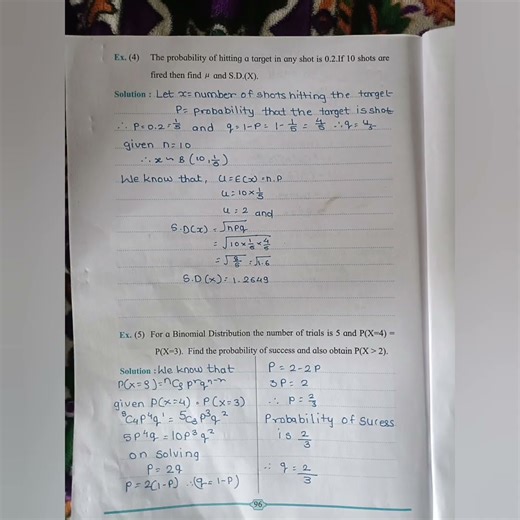 Ex. (4) The probability of hitting a target in any shot is 0.2.If 10 shots are
fired then find μ and S.D.(X).
Solution : Let x=number of shots hitting the target
P= probability that the target is shot
∴ P=0.2=1/5 and q=1-P=1-1/5=4/5 ∴q=4/5
given n=10
∴ x~B(10,1/5)
We know that, u=E(x)=n.P
u=10×1/5
u=2 and
S.D(x)=√nPq
=√10×1/5×4/5
=√8/5=√1.6
S.D(x)=1.2649
Ex. (5) For a Binomial Distribution the number of trials is 5 and P(X=4) =
P(X=3). Find the probability of success and also obtain P(X > 2).
Solution : We know that
given P(x=4)=P(x=3)
5C4P4q1=5C3P3q2
5P4q=10P3q2
on solving
P=2q
P=2(1-P) ∴(q=1-P)
P=2-2P
3P=2
∴ P=2/3
Probability of Sucess
is 2/3
∴ q=2/3
96